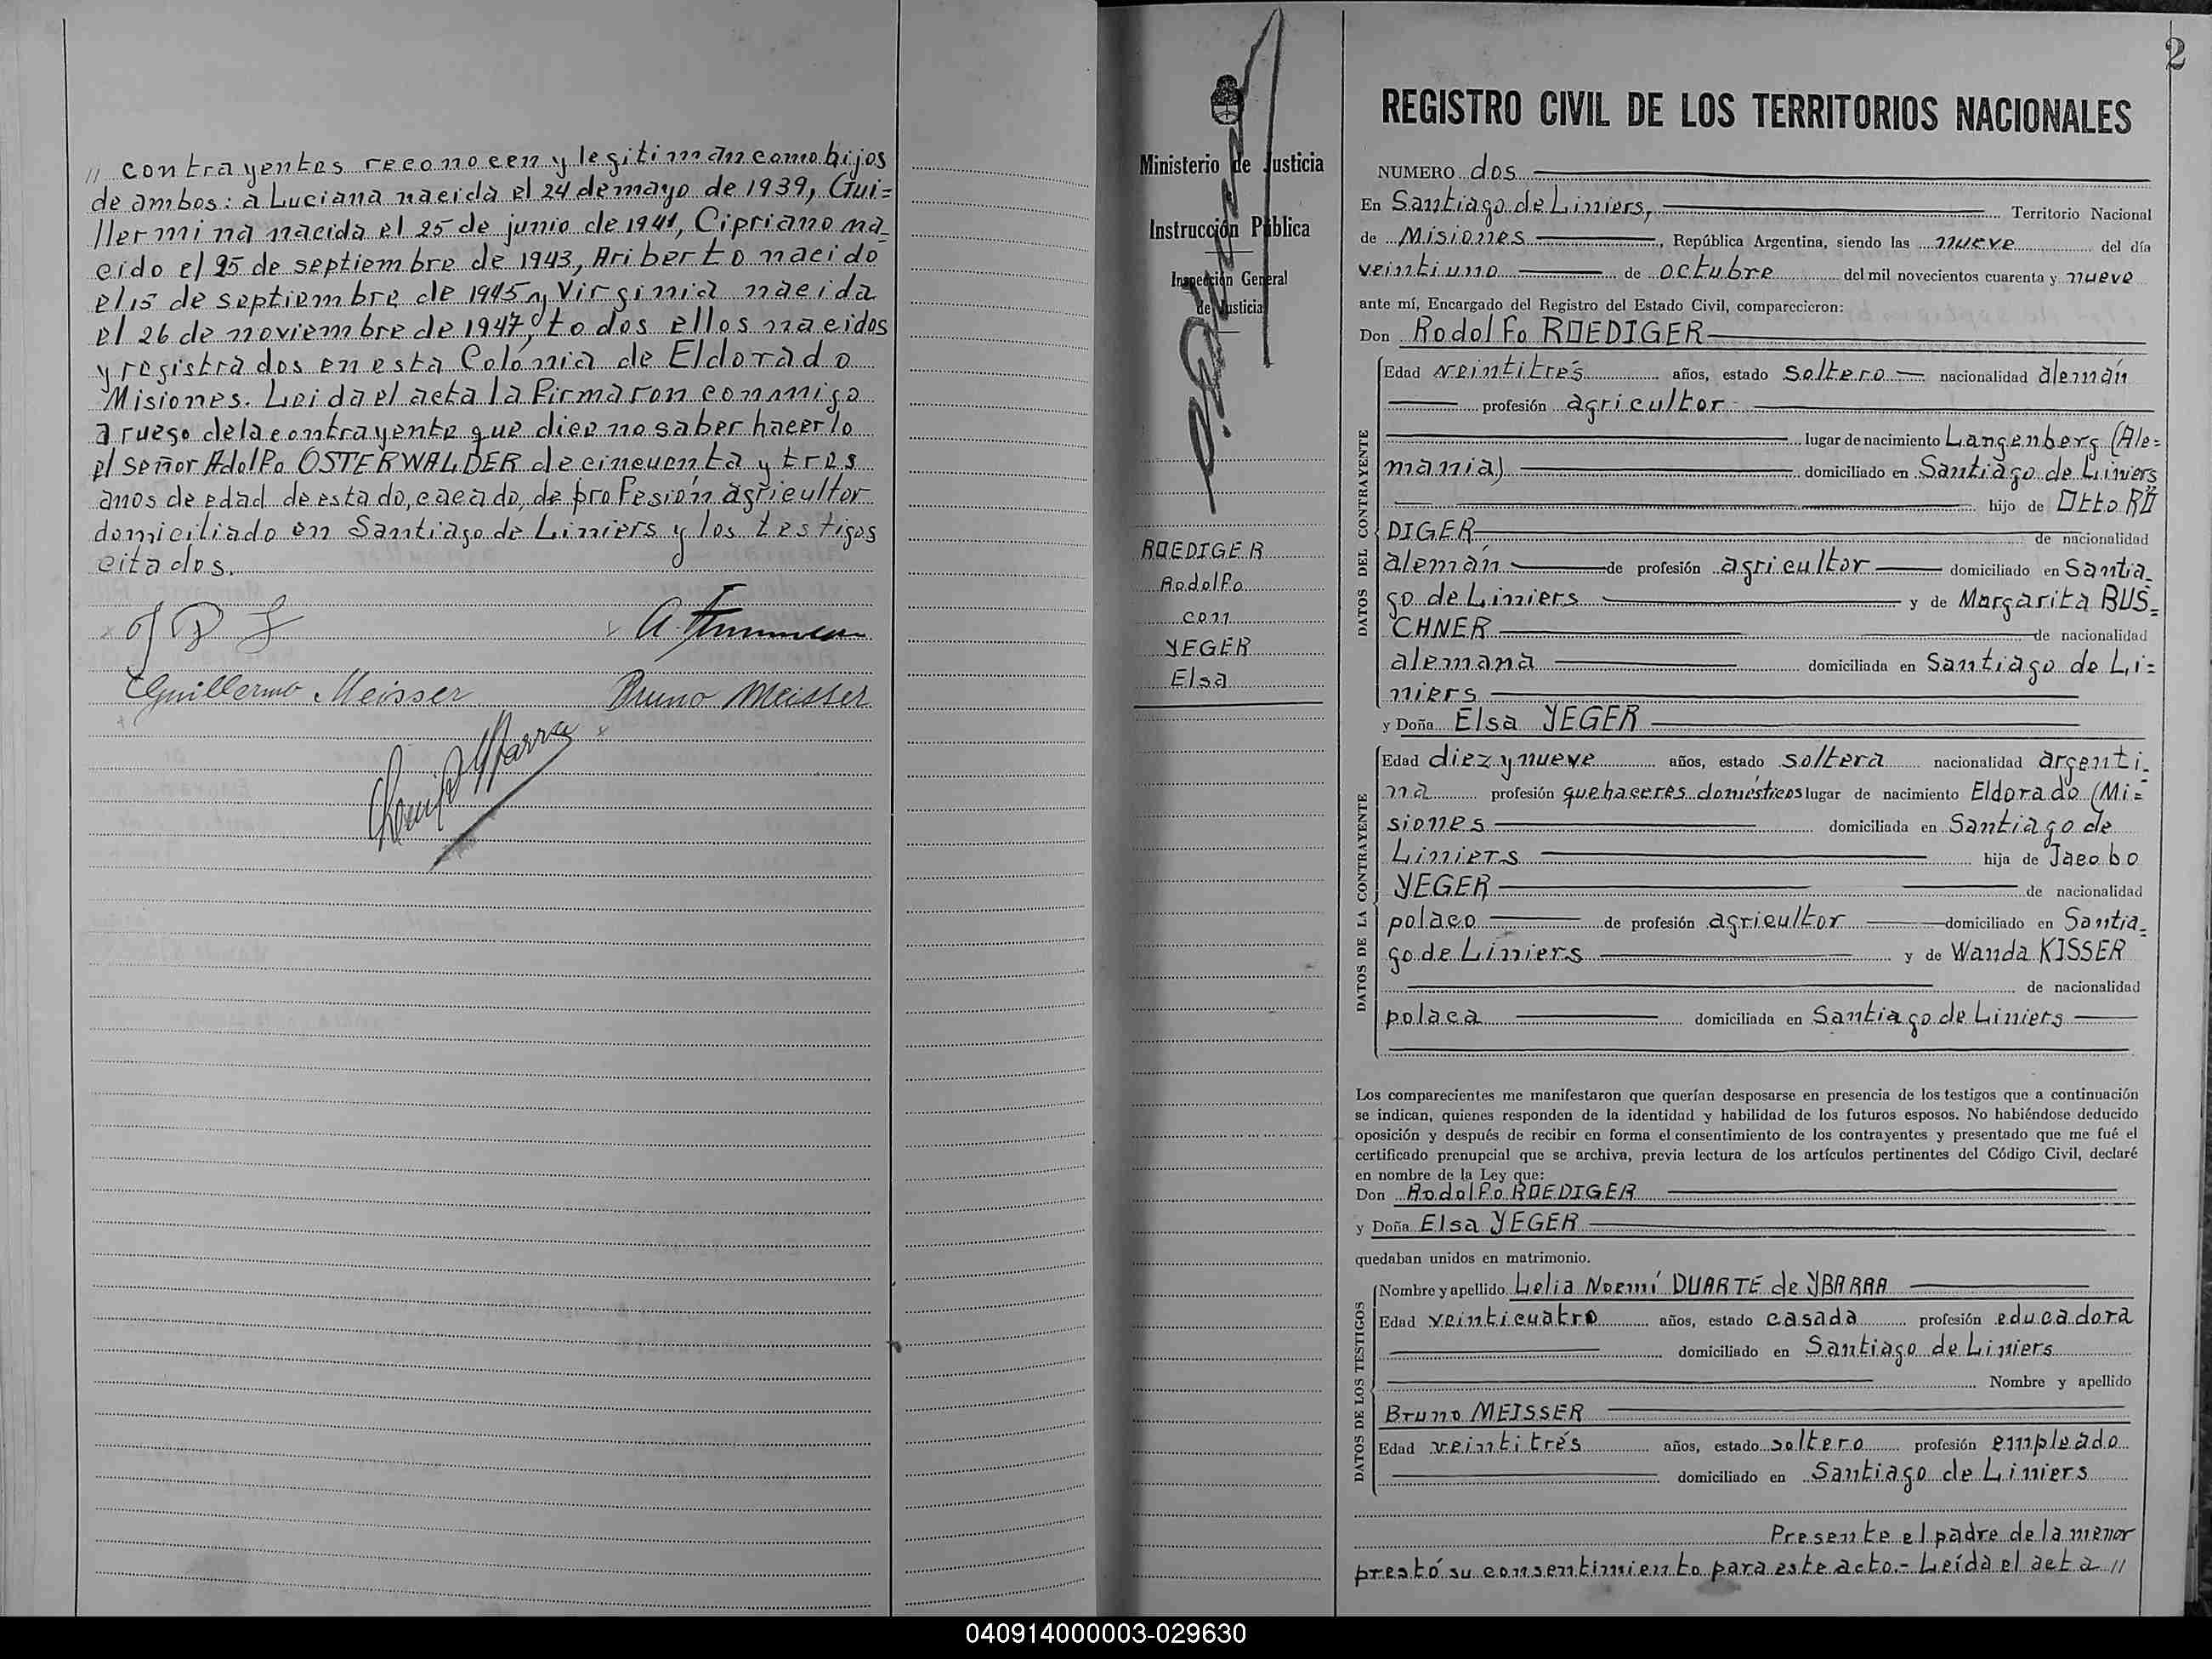 // contrayentes reconocen y legitiman como hijos
de ambos: a Luciana nacida el 24 de mayo de 1939, Gui=
llermina nacida el 25 de junio de 1941, Cipriano na_
cido el 25 de septiembre de 1943, Ariberto nacido
el 15 de septiembre de 1945 y Virginia nacida
el 26 de noviembre de 1947, todos ellos nacidos
y registrados en esta Colonia de Eldorado
Misiones. Leida el acta la firmaron conmigo
a ruego de la contrayente que dice no saber hacerlo
el señor Adolfo OSTERWALDER de cincuenta y tres
anos de edad de estado, casado, de profesión agricultor
domiciliado en Santiago de Liniers y los testigos
citados.
Guillermo Meisser Bruno Meisser
Ministerio de Justicia
Instrucción Pública
Inspección General
de Justicia
ROEDIGER
Rodolfo
con
YEGER
Elsa
2
REGISTRO CIVIL DE LOS TERRITORIOS NACIONALES
NUMERO dos
En Santiago de Liniers, Territorio Nacional
de Misiones, República Argentina, siendo las nueve del día
veintiuno de octubre del mil novecientos cuarenta y nueve
ante mí, Encargado del Registro del Estado Civil, comparecieron:
Don Rodolfo ROEDIGER
DATOS DEL CONTRAYENTE
Edad veintitrés años, estado soltero nacionalidad alemán
profesión agricultor
lugar de nacimiento Langenberg (Ale=
mania) domiciliado en Santiago de Liniers
hijo de Otto RÖ
DIGER de nacionalidad
alemán de profesión agricultor domiciliado en Santia_
go de Liniers y de Margarita BUS=
CHNER de nacionalidad
alemana domiciliada en Santiago de Li=
niers
y Doña Elsa YEGER
DATOS DE LA CONTRAYENTE
Edad diez y nueve años, estado soltera nacionalidad argenti_
na profesión quehaceres domésticos lugar de nacimiento Eldorado (Mi=
siones domiciliada en Santiago de
Liniers hija de Jacobo
YEGER de nacionalidad
polaco de profesión agricultor domiciliado en Santia_
go de Liniers y de Wanda KISSER
de nacionalidad
polaca domiciliada en Santiago de Liniers
Los comparecientes me manifestaron que querían desposarse en presencia de los testigos que a continuación
se indican, quienes responden de la identidad y habilidad de los futuros esposos. No habiéndose deducido
oposición y después de recibir en forma el consentimiento de los contrayentes y presentado que me fué el
certificado prenupcial que se archiva, previa lectura de los artículos pertinentes del Código Civil, declaré
en nombre de la Ley que:
Don Rodolfo ROEDIGER
y Doña Elsa YEGER
quedaban unidos en matrimonio.
DATOS DE LOS TESTIGOS
Nombre y apellido Lelia Noemí DUARTE de YBARRA
Edad veinticuatro años, estado casada profesión educadora
domiciliado en Santiago de Liniers
Nombre y apellido
Bruno MEISSER
Edad veintitrés años, estado soltero profesión empleado
domiciliado en Santiago de Liniers
Presente el padre de la menor
prestó su consentimiento para este acto.- Leída el acta //
040914000003-029630